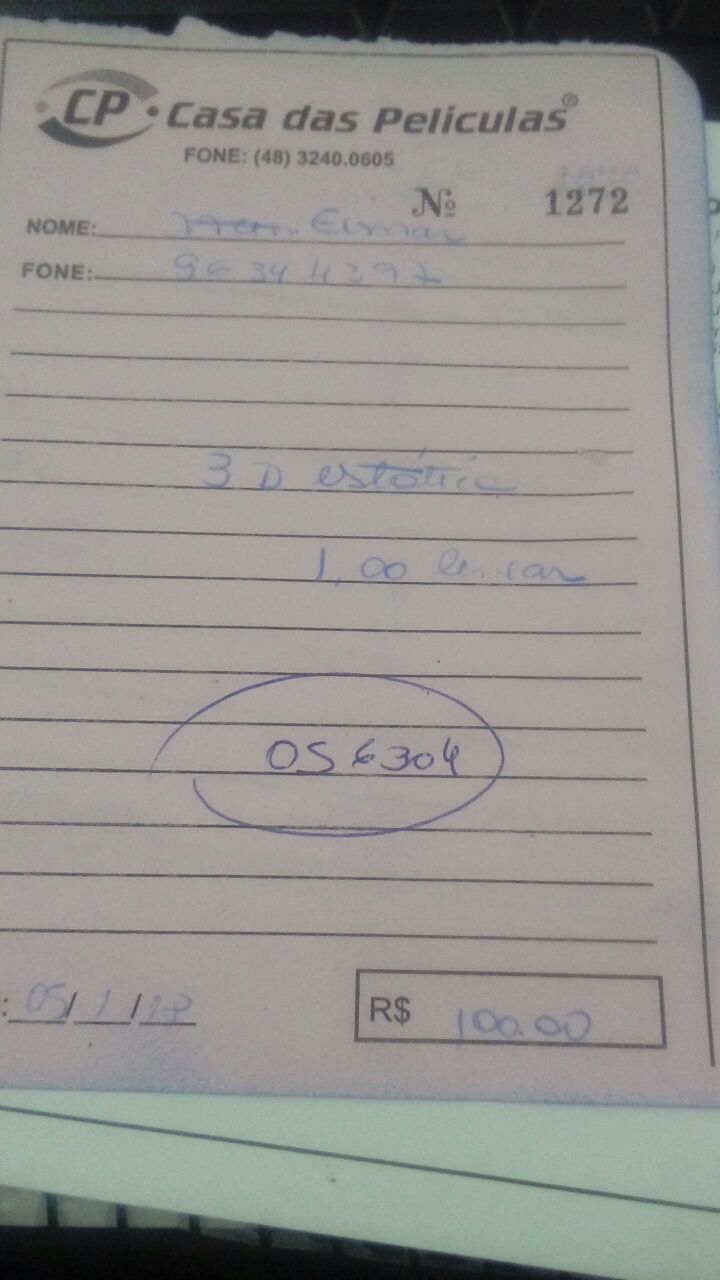 CP • Casa das Películas®
FONE: (48) 3240.0605
Nº 1272
NOME: Elmar
FONE: 96344397
3D estática
1,00 linear
OS 6304
: 05/1/
R$ 100.00